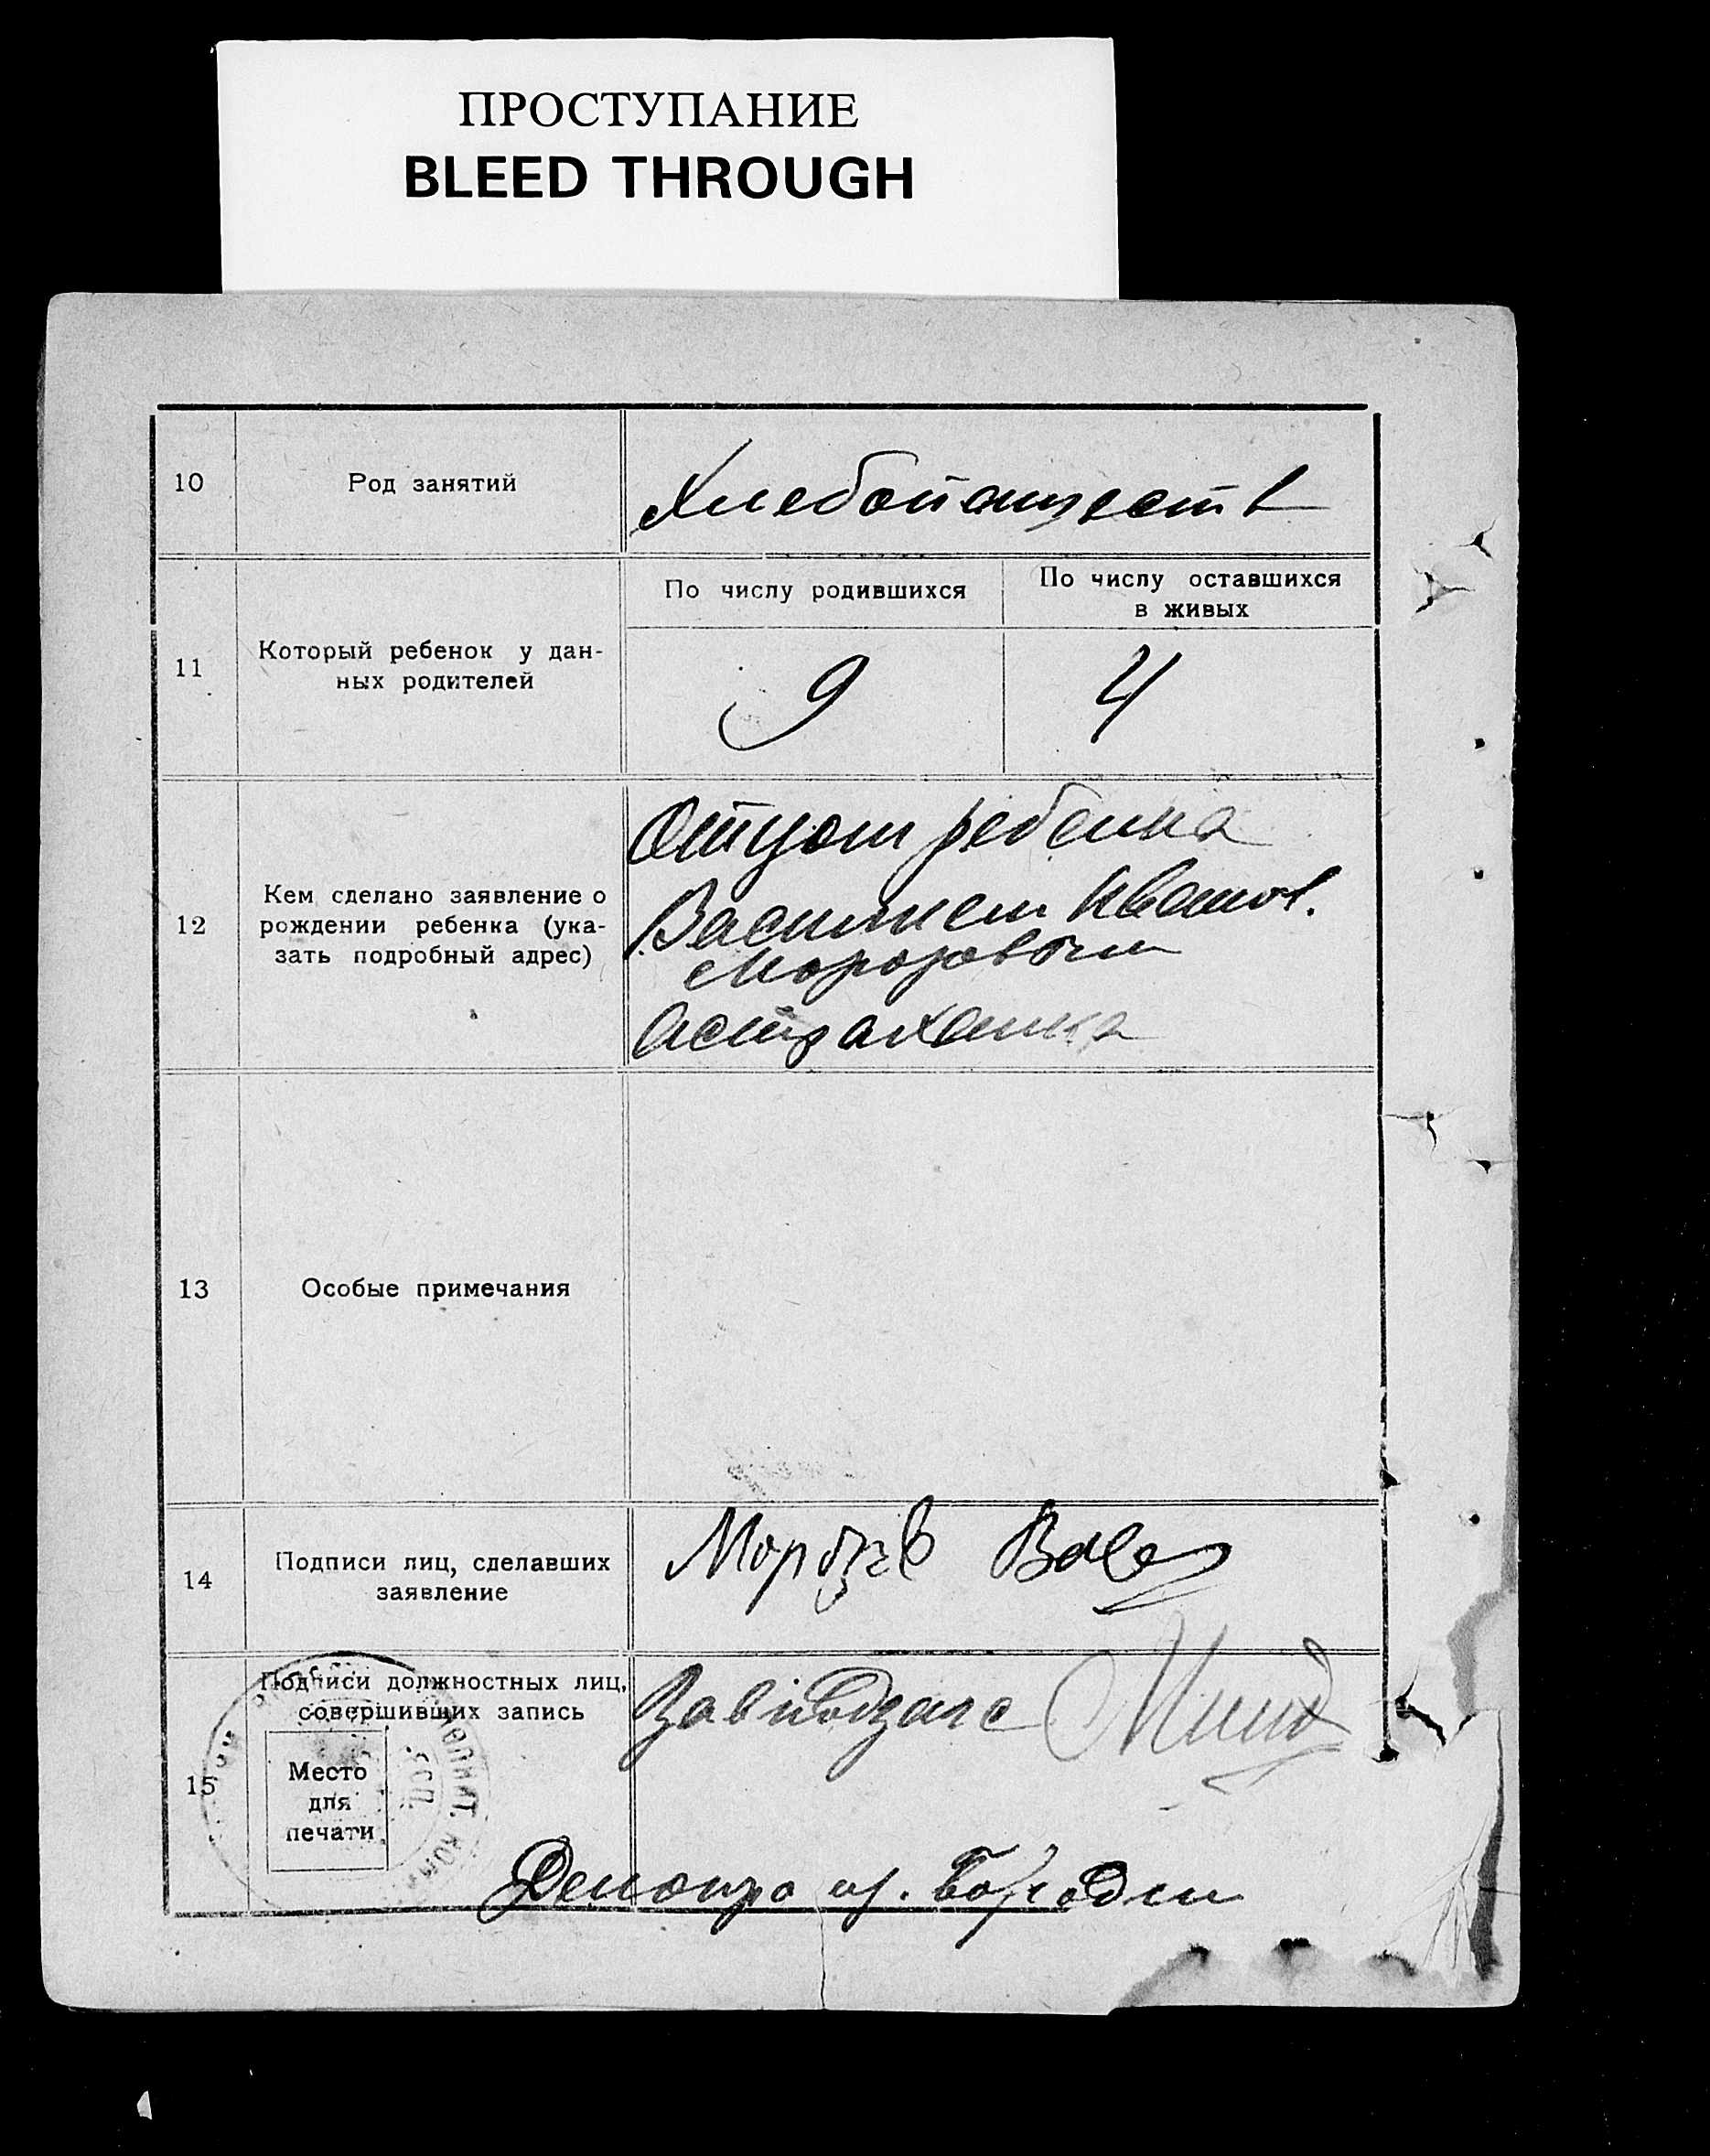 ПРОСТУПАНИЕ
BLEED THROUGH
10
Род занятий
Хлебопашеств
11
Который ребенок у дан-
ных родителей
По числу родившихся
По числу оставшихся
в живых
9
4
12
Кем сделано заявление о
рождении ребенка (ука-
зать подробный адрес)
Отцом ребенка
Василием Иванов.
Морозовым
Астраханка
13
Особые примечания
14
Подписи лиц, сделавших
заявление
Морозов Вас
15
Подписи должностных лиц,
совершивших запись
Место
для
печати